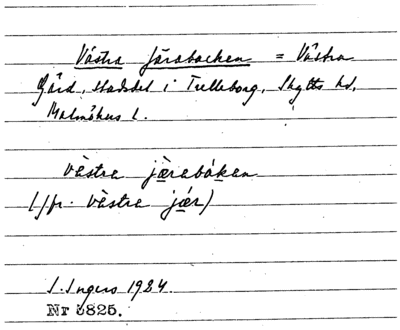 Västra Järabacken = Västra
Gärd, stadsdel i Trelleborg, Skytts hd,
Malmöhus l.
västra järabáken
(jfr. västra jär)
I. Ingers 1924.
Nr 3825.